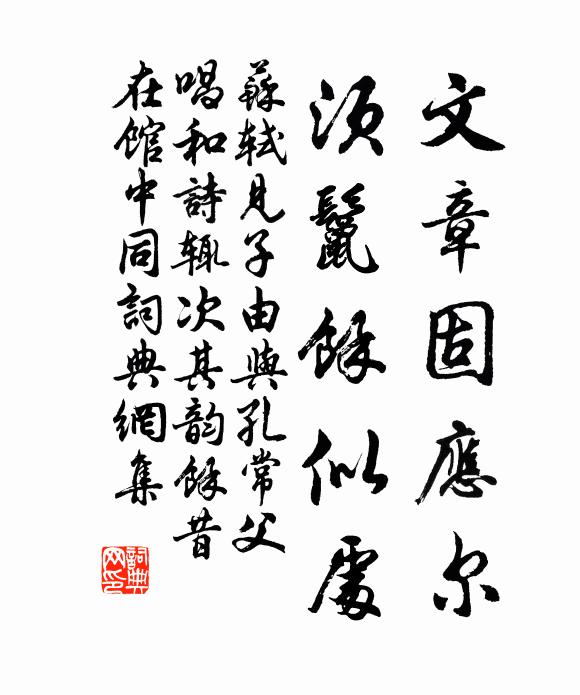 文章固應尔
須鬣餘似處
蘇軾見子由與孔常父
唱和詩輒次其韵餘昔
在館中同詞典網集
詞典
网印